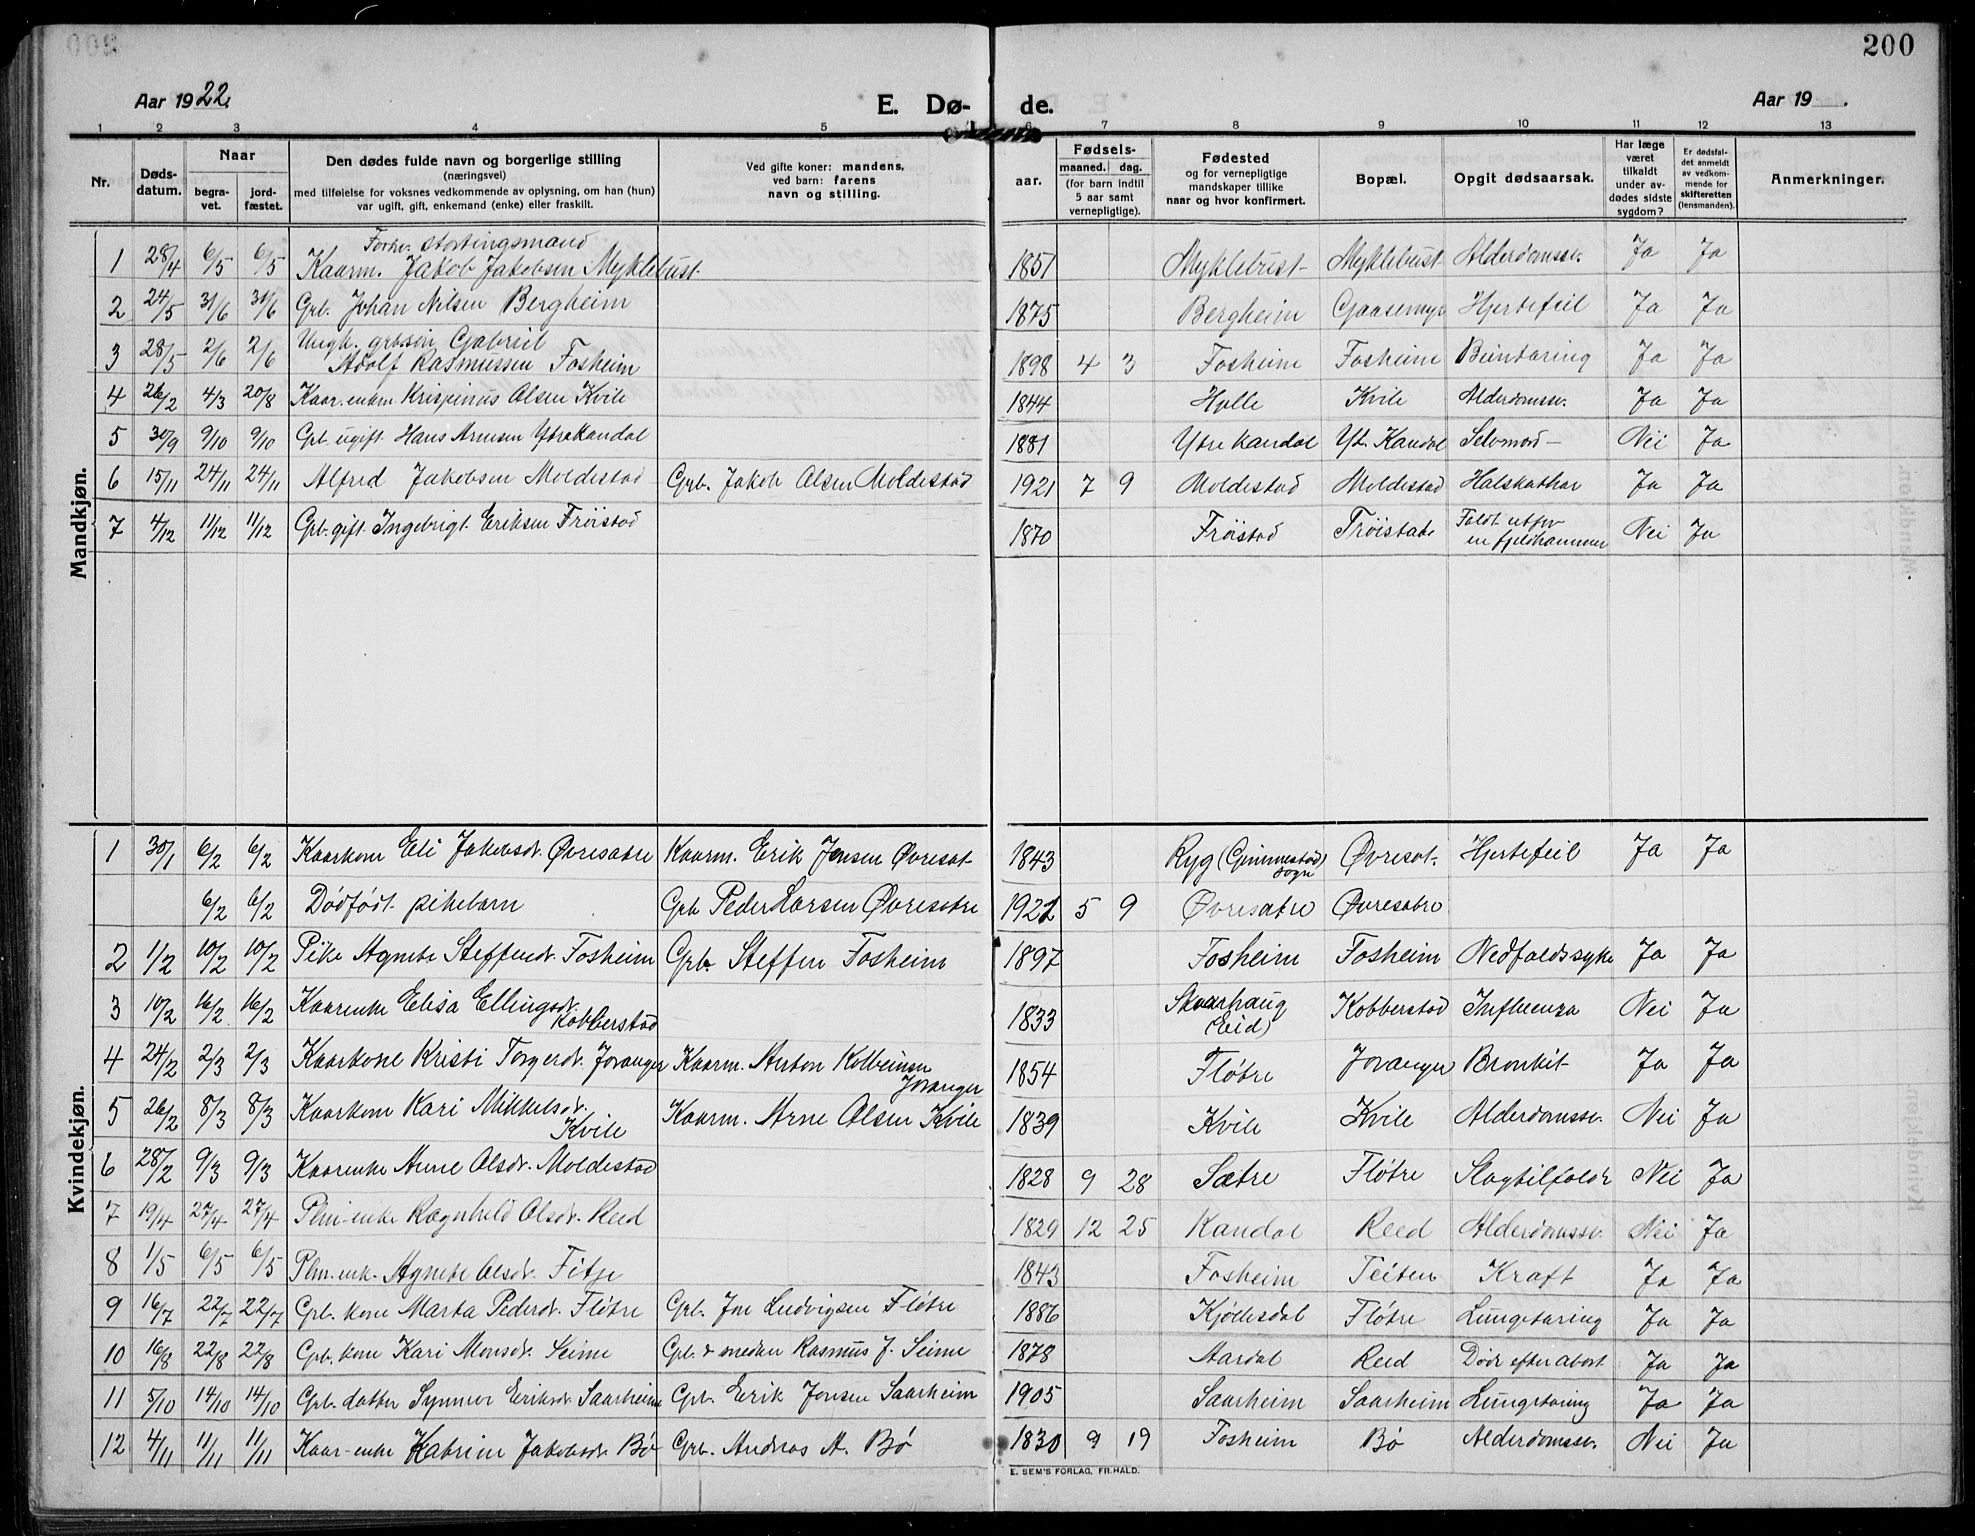 200
Aar 1922.
E. Dø-
de.
Aar 19 .
1 2 3 4 5 6 7 8 9 10 11 12 13
Nr.
Døds-
datum.
Naar
begra-
vet.
jord-
fæstet.
Den dødes fulde navn og borgerlige stilling
(næringsvei)
med tilføielse for voksnes vedkommende av oplysning, om han (hun)
var ugift, gift, enkemand (enke) eller fraskilt.
Ved gifte koner: mandens,
ved barn: farens
navn og stilling.
Fødsels-
aar.
maaned. dag.
(for barn indtil
5 aar samt
vernepligtige).
Fødested
og for vernepligtige
mandskaper tillike
naar og hvor konfirmert.
Bopæl.
Opgit dødsaarsak.
Har læge
været
tilkaldt
under av-
dødes sidste
sygdom?
Er dødsfal-
det anmeldt
av vedkom-
mende for
skifteretten
(lensmanden).
Anmerkninger.
Mandkjøn.
Forhv. stortingsmand
1 28/4 6/5 6/5 Kaarm. Jakob Jakobsen Myklebust 1851 Myklebust Myklebust Alderdomssv. Ja Ja
2 24/5 31/6 31/6 Grb. Johan Nilsen Bergheim 1875 Bergheim Gaasemyr Hjertefeil Ja Ja
Ungk. grbsøn Gabriel
3 28/5 2/6 2/6 Adolf Rasmussen Fosheim 1898 4 3 Fosheim Fosheim Beintæring Ja Ja
4 26/2 4/3 20/8 Kaar.enkm. Krispinus Olsen Kvile 1844 Hølle Kvile Alderdomssv. Ja Ja
5 30/9 9/10 9/10 Grb. ugift Hans Arnesen Ytrekandal 1881 Ytre Kandal Yt. Kandal Selvmord Nei Ja
6 15/11 24/11 24/11 Alfred Jakobsen Moldestad Grb. Jakob Olsen Moldestad 1921 7 9 Moldestad Moldestad Halskathar Ja Ja
7 4/12 11/12 11/12 Grb. gift Ingebrigt Eriksen Frøistad 1870 Frøistad Frøistad Faldt utfor
en fjeldhammer Nei Ja
Kvindekjøn.
1 30/1 6/2 6/2 Kaarkone Eli Jakobsdr. Øvresætre Kaarm. Erik Jonsen Øvresæt. 1843 Ryg (Gimmestad
sogn) Øvresæt. Hjertefeil Ja Ja
6/2 6/2 Dødfødt pikebarn Grb Peder Larsen Øvresætre 1922 5 9 Øvresætre Øvresætre
2 1/2 10/2 10/2 Pike Agnete Steffendr. Fosheim Grb. Steffen Fosheim 1897 Fosheim Fosheim Nedfaldssyke Ja Ja
3 10/2 16/2 16/2 Kaarenke Elisa Ellingsdr.
Kobberstad 1833 Skaarhaug
(Eid) Kobberstad Influensa Nei Ja
4 24/2 2/3 2/3 Kaarkone Kristi Torgerdr. Jovanger Kaarm. Anton Kolbeinsen
Jovanger 1854 Fløtre Jovanger Bronkit Ja Ja
5 26/2 8/3 8/3 Kaarkone Kari Mikkelsdr.
Kvile Kaarm. Arne Olsen Kvile 1839 Kvile Kvile Alderdomssv. Nei Ja
6 28/2 9/3 9/3 Kaarenke Anne Olsdr. Moldestad 1828 9 28 Sætre Fløtre Slagtilfælde Nei Ja
7 19/4 27/4 27/4 Plm-enke Ragnhild Olsdr. Reed 1829 12 25 Kandal Reed Alderdomssv. Nei Ja
8 1/5 6/5 6/5 Plm.enk. Agnete Olsdr. Fitje 1843 Fosheim Teiten Kræft Ja Ja
9 16/7 22/7 22/7 Grb. kone Marta Pedersdr. Fløtre Grb. Jon Ludvigsen Fløtre 1886 Kjøllesdal Fløtre Lungetæring Ja Ja
10 16/8 22/8 22/8 Grb. kone Kari Monsdr. Seime Grb. & snedker Rasmus J. Seime 1878 Aardal Reed Døde efter abort Ja Ja
11 5/10 14/10 14/10 Grb. datter Synnøve Eriksdr. Saarheim Grb. Erik Jonsen Saarheim 1905 Saarheim Saarheim Lungetæring Ja Ja
12 4/11 11/11 11/11 Kaar-enke Katrine Jakobsdr. Bø Grb. Andreas A. Bø 1830 9 19 Fosheim Bø Alderdomssv. Nei Ja
E. SEM'S FORLAG, FR.HALD.